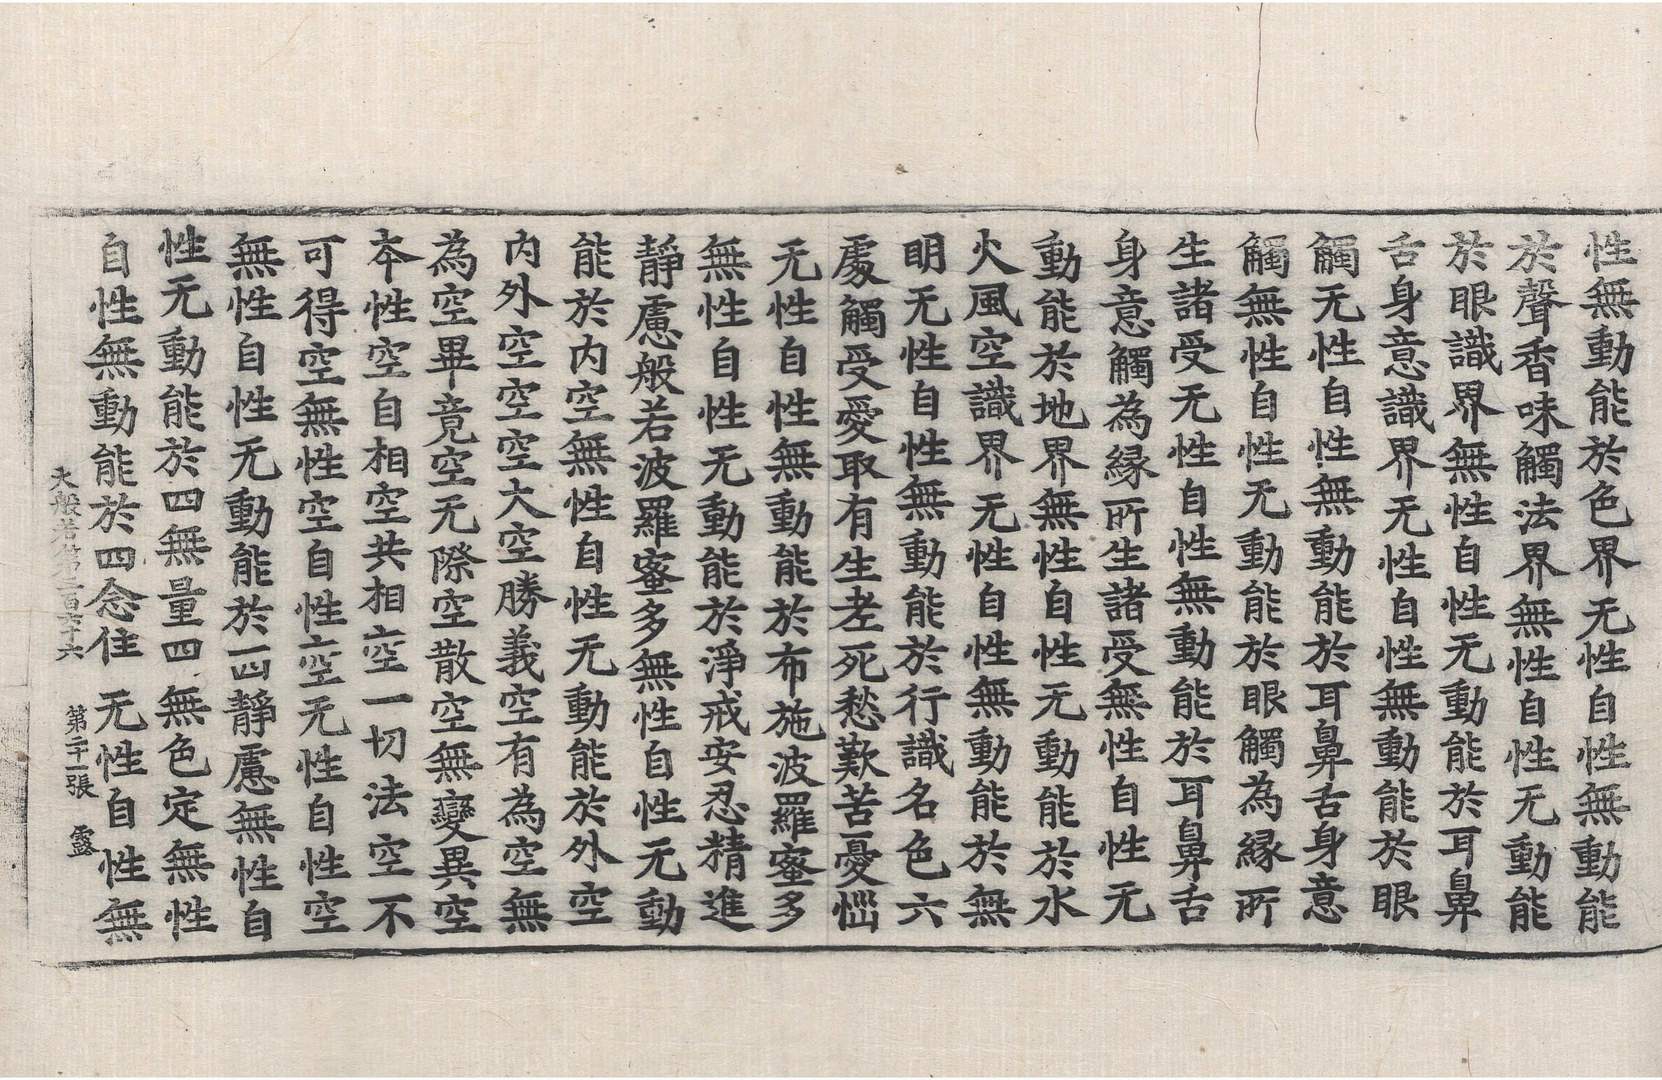 性無動能於色界无性自性無動能
於聲香味觸法界無性自性无動能
於眼識界無性自性无動能於耳鼻
舌身意識界无性自性無動能於眼
觸无性自性無動能於耳鼻舌身意
觸無性自性无動能於眼觸為縁所
生諸受无性自性無動能於耳鼻舌
身意觸為縁所生諸受無性自性无
動能於地界無性自性无動能於水
火風空識界无性自性無動能於無
明无性自性無動能於行識名色六
處觸受愛取有生老死愁歎苦憂惱
无性自性無動能於布施波羅蜜多
無性自性无動能於淨戒安忍精進
靜慮般若波羅蜜多無性自性无動
能於内空無性自性无動能於外空
内外空空空大空勝義空有為空無
為空畢竟空无際空散空無變異空
本性空自相空共相空一切法空不
可得空無性空自性空无性自性空
無性自性无動能於四靜慮無性自
性无動能於四無量四無色定無性
自性無動能於四念住无性自性無
大般若第三百六十六 第二十一張 露